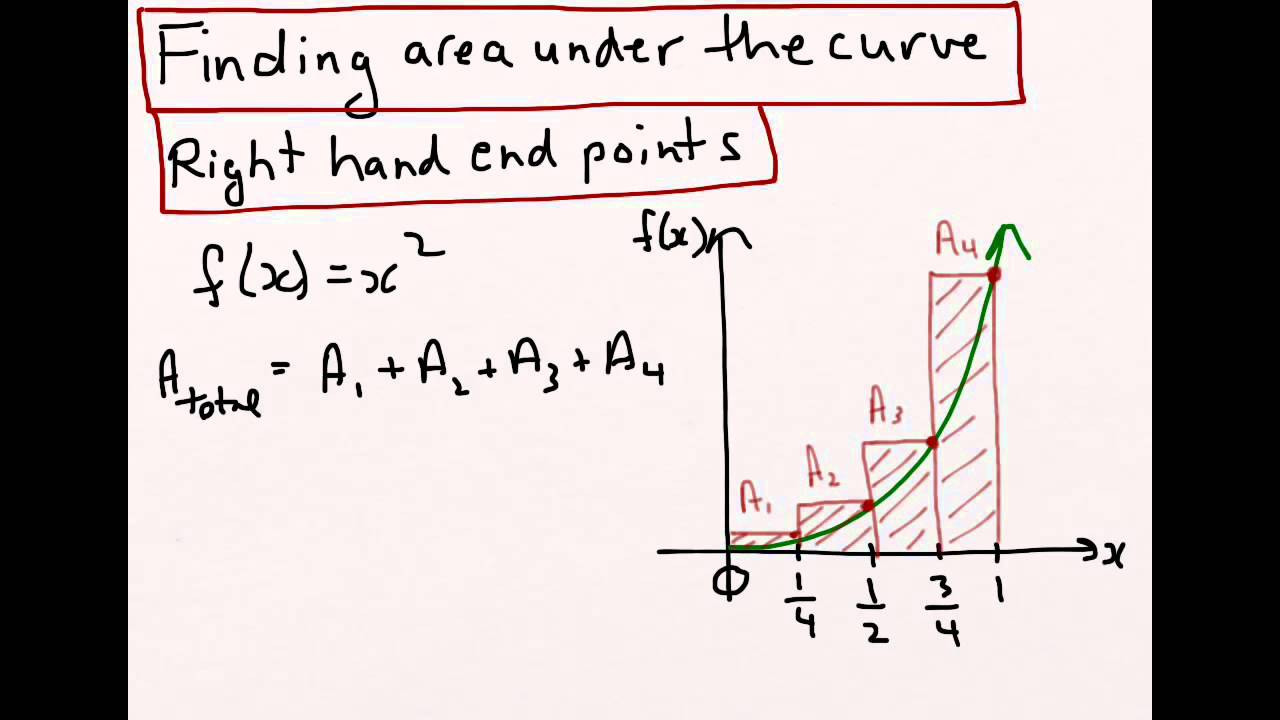 Finding area under the curve
Right hand end points
f(x) = x²
A_total = A₁ + A₂ + A₃ + A₄
f(x)
A₄
A₃
A₂
A₁
x
0 1/4 1/2 3/4 1